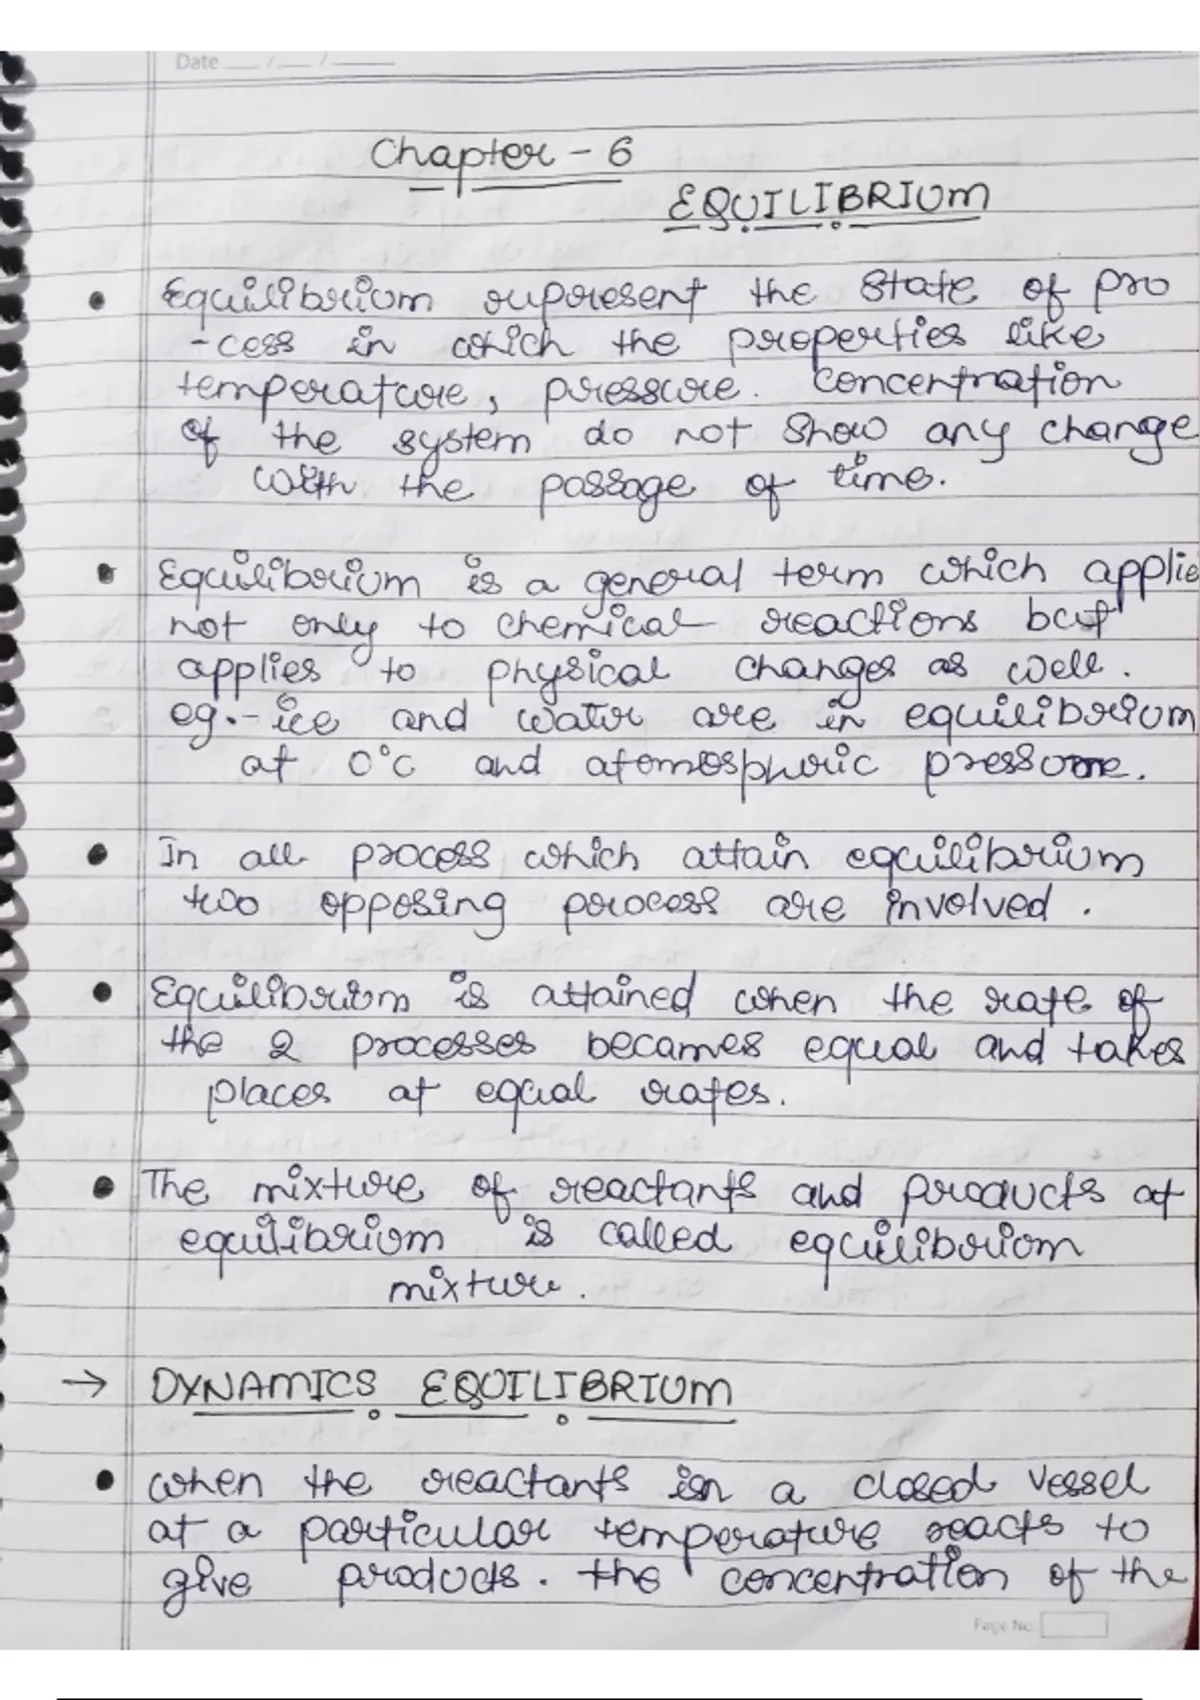 Date __/__/____
Chapter - 6
EQUILIBRIUM
• Equilibrium represent the State of pro
-cess in which the properties like
temperature, pressure. Concentration
of the system do not show any change
with the passage of time.
• Equilibrium is a general term which applie
not only to chemical reactions but
applies to physical changes as well.
eg.- ice and water are in equilibrium
at 0°C and atomospheric pressure.
• In all process which attain equilibrium
two opposing process are involved.
• Equilibrium is attained when the rate of
the 2 processes becames equal and takes
places at equal rates.
• The mixture of reactants and products at
equilibrium is called equilibriom
mixture.
→ DYNAMICS EQUILIBRIUM
• When the reactants in a closed vessel
at a particular temperature reacts to
give products. the concentration of the
Page No.